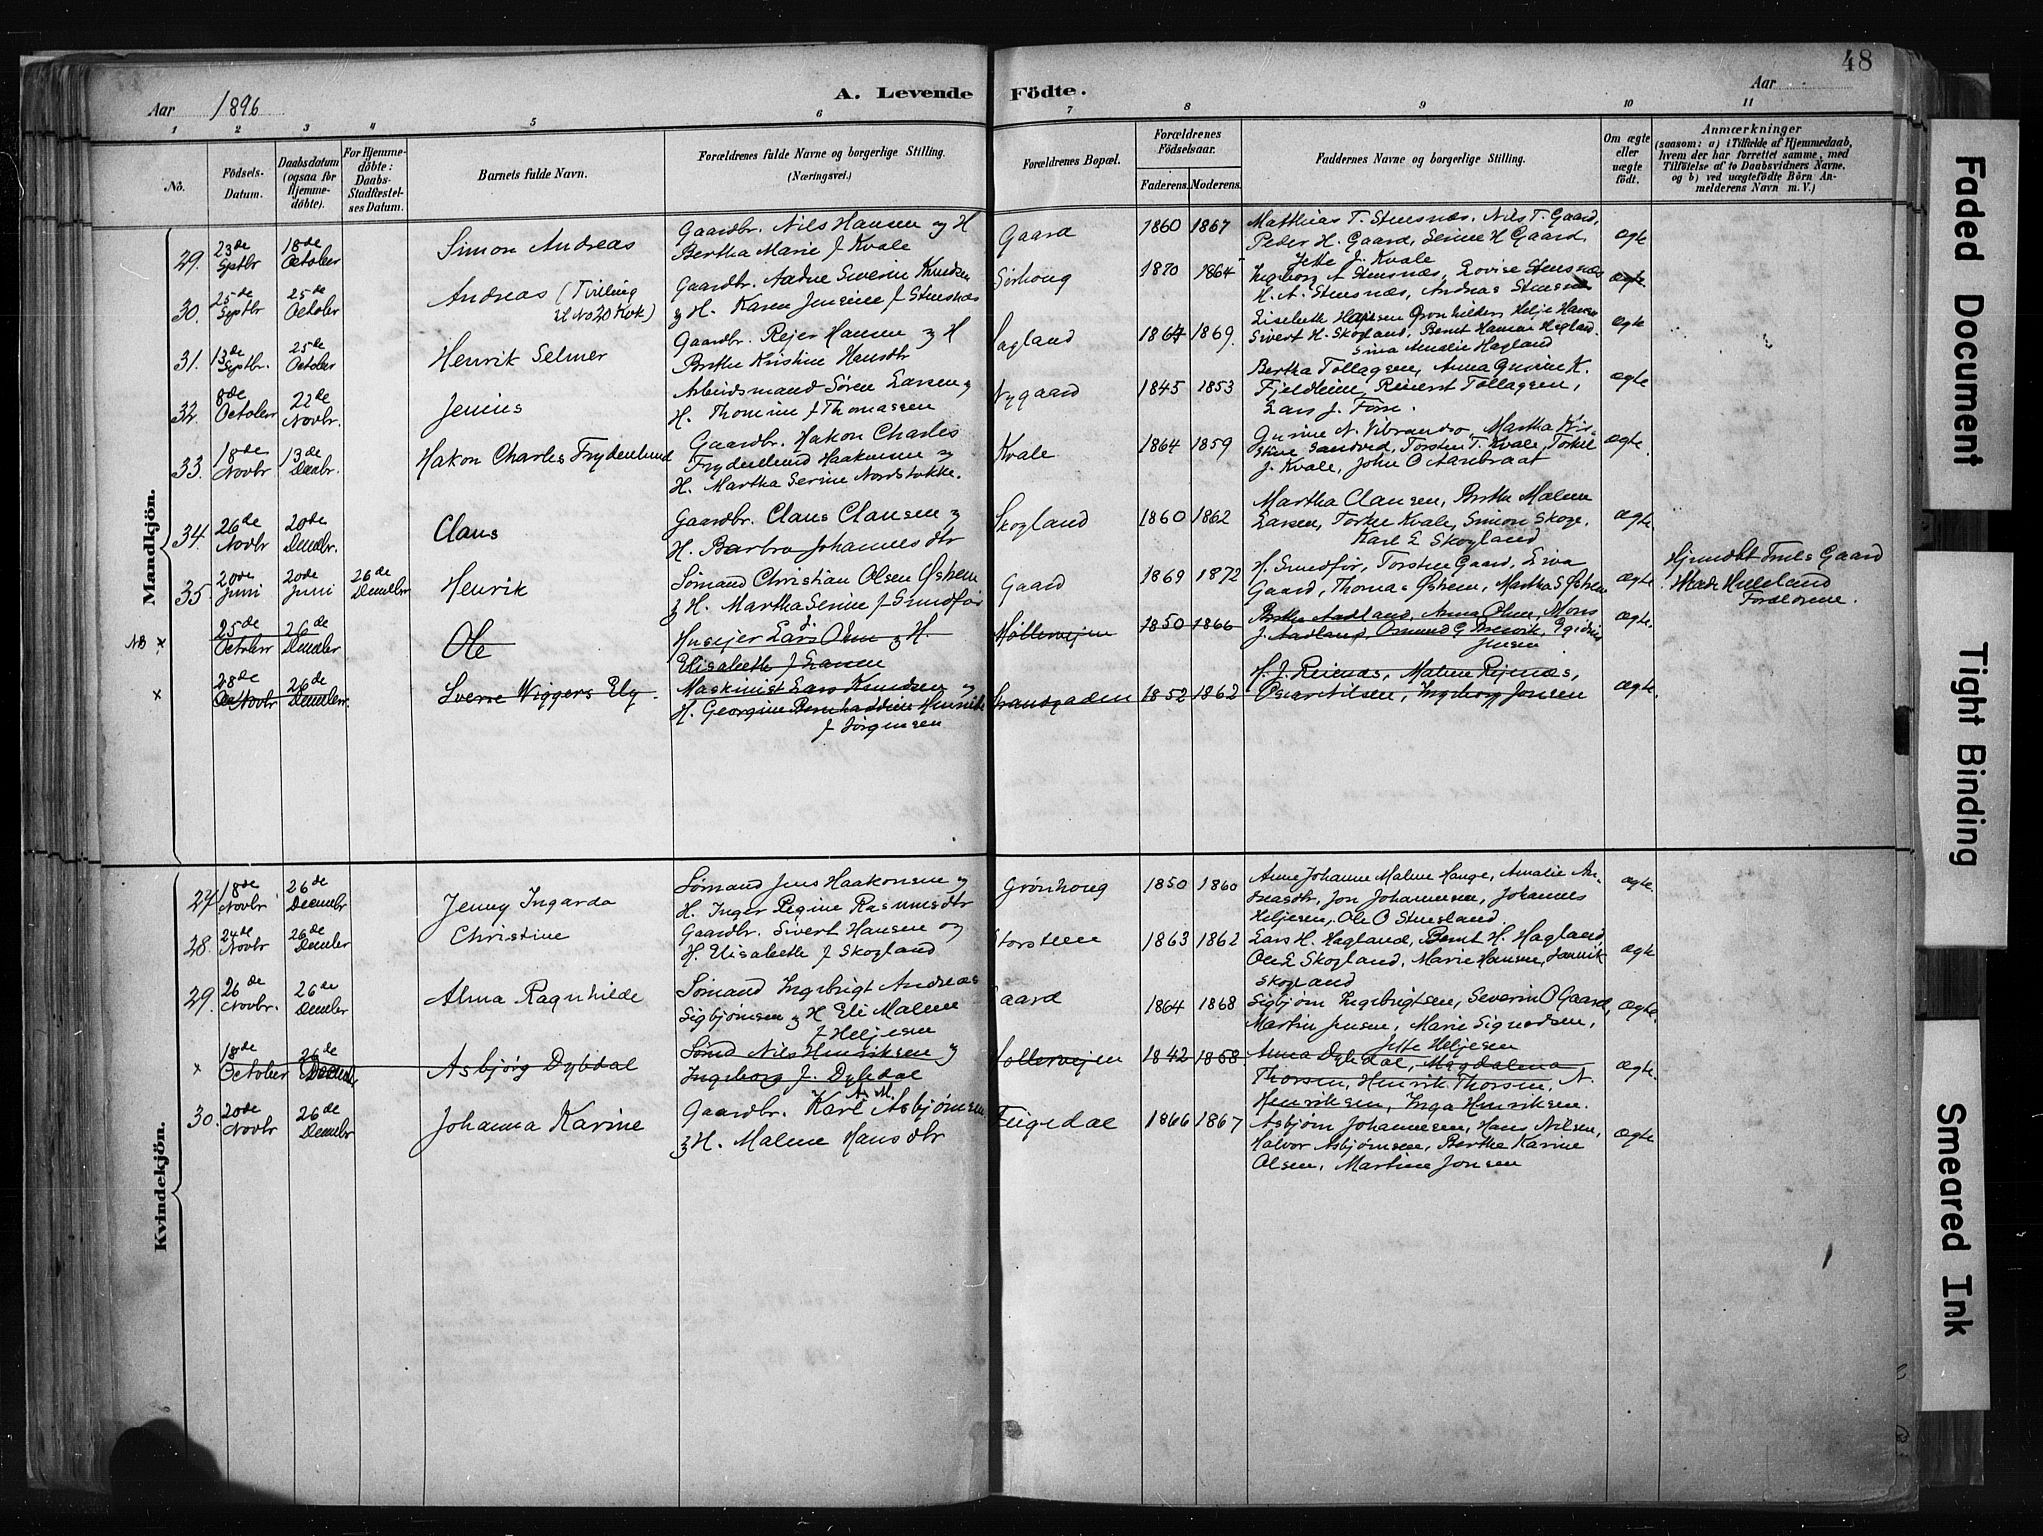 48
Aar 1896
A. Levende Födte.
Aar
1 2 3 4 5 6 7 8 9 10 11
No.
Födsels-Datum.
Daabsdatum (ogsaa for Hjemme-döbte).
For Hjemme-döbte: Daabs-Stadfæstel-ses Datum.
Barnets fulde Navn.
Forældrenes fulde Navne og borgerlige Stilling.
(Næringsvei.)
Forældrenes Bopæl.
Forældrenes Födselsaar.
Faderens. Moderens.
Faddernes Navne og borgerlige Stilling.
Om ægte eller uægte födt.
Anmærkninger
(saasom: a) i Tilfælde af Hjemmedaab, hvem der har forrettet samme, med Tilföielse af to Daabsvidners Navne, og b) ved uægtefödte Börn An-melderens Navn m. V.)
Mandkjön.
29. 23de Septbr 18de October Simon Andreas
Gaardbr. Nils Hansen og H
Bertha Marie J Kvale
Gaard 1860 1867
Matthias T. Stensnæs, Nils T. Gaard,
Peder H. Gaard, Serine H Gaard
Jette J. Kvale
ægte
30. 25de Septbr 25de October Andreas (Tvilling til No 20 Kvk)
Gaardbr. Aadne Severin Knudsen
og H. Karen Jensine J Stensnæs
Sørhoug 1870 1864
Ingeborg A Stensnæs, Lovise Stensnæs
H. A. Stensnæs, Andreas Stensnæs
ægte
31. 13de Septbr. 25de October Henrik Selmer
Gaardbr. Rejer Hansen og H
Berthe Kristine Hansdtr
Hagland 1864 1869.
Elisabeth Hansen Grønhilder, Helje Hansen
Sivert H. Skogland, Bernt Hansen Hagland
Sina Amalie Hagland
ægte
32. 8de October 22de Novbr. Jenius
Arbeidsmand Søren Larsen og
H. Thomine J Thomassen
Nygaard 1845 1853
Bertha Tollagsen, Anna Gurine K.
Fjeldheim, Reinert Tollagsen,
Lars J. Fosse.
ægte
33. 18de Novbr 13de Decbr. Hakon Charles Frydenlund
Gaardbr. Hakon Charles
Frydenlund Haakonsen og
H. Martha Serine Nordstokke.
Kvale 1864 1859
Gurine N. Vibrandsø, Martha Kri-
stine Sandved, Torsten T. Kvale, Torkel
J. Kvale, John O Aanbraat
ægte
34. 26de Novbr 20de Decmbr. Claus
Gaardbr. Claus Clausen og
H. Barbro Johannesdtr
Skogland 1860 1862
Martha Clausen, Berthe Malene
Larsen, Torkel Kvale, Simon Skoge,
Karl E Skogland
ægte.
35. 20de Juni 20de Juni 26de Decmbr Henrik
Sømand Christian Olsen Østhem
og H. Martha Serine J Smedfør
Gaard 1869 1872
H. Smedfør, Torsten Gaard, Lina
Gaard, Thomas Østhem, Martha S Østhem
ægte
Hjemdbt Truls Gaard
Mads Helleland
Forældrene.
NB × 25de October 26de Decmbr Ole
Huseier Lars J. Olsen og H.
Elisabeth J Larsen
Møllervejen 1850 1866
Berthe Aadland, Anna Olsen, Mons
J. Aadland, Osmund G Brevik, Egidius
Jensen
ægte.
× 28de Novbr 26de Decmbr. Sverre Wiggers Ely
Maskinist Lars Knudsen og
H. Georgine Bernhardine Henrikke
J Jørgensen
Strandgaden 1852 1862
H. J. Reienæs, Malene Reienæs,
Oscar Nilsen, Ingeborg Jonsen
ægte.
Kvindekjön.
27. 18de Novbr 26de Decembr Jenny Ingarda
Sømand Jens Haakonsen og
H. Inger Regine Rasmusdtr
Grønhoug 1850 1860
Anne Johanne Malene Hauge, Amalie An-
dreasdtr, Jon Johannesen, Johannes
Heljesen, Ole O Stuesland
ægte.
28. 24de Novbr 26de Decmbr Christine
Gaardbr. Sivert Hansen og
H. Elisabeth J Skogland
Storsteen 1863 1862
Lars H. Hagland, Bernt H. Hagland
Ole E Skogland, Marie Hansen, Jannik
Skogland
ægte
29. 26de Novbr. 26de Decmbr Alma Ragnhilde
Sømand Ingebrigt Andreas
Sigbjørnsen og H Eli Malene
J Heljesen
Gaard 1864 1868
Sigbjørn Ingebrigtsen, Severin O Gaard,
Martin Jensen, Marie Sigurdsen,
Jette Heljesen
ægte.
× 18de October 26de Decmbr Asbjørg Dybdal
Sømd Nils Henriksen og
Ingeborg J. Dybdal
Møllervejen 1842 1858
Anna Dybdal, Magdalena
Thorsen, Henrik Thorsen, N.
Henriksen, Inga Henriksen.
ægte.
30. 20de Novbr 26de Decmbr Johanna Karine
Gaardbr. Karl A. M. Asbjørnsen
og H. Malene Hansdtr
Feigedal 1866 1867
Asbjørn Johannesen, Hans Nilsen,
Halvor Asbjørnsen, Berthe Karine
Olsen, Martine Jonsen
ægte
Faded Document
Tight Binding
Smeared Ink